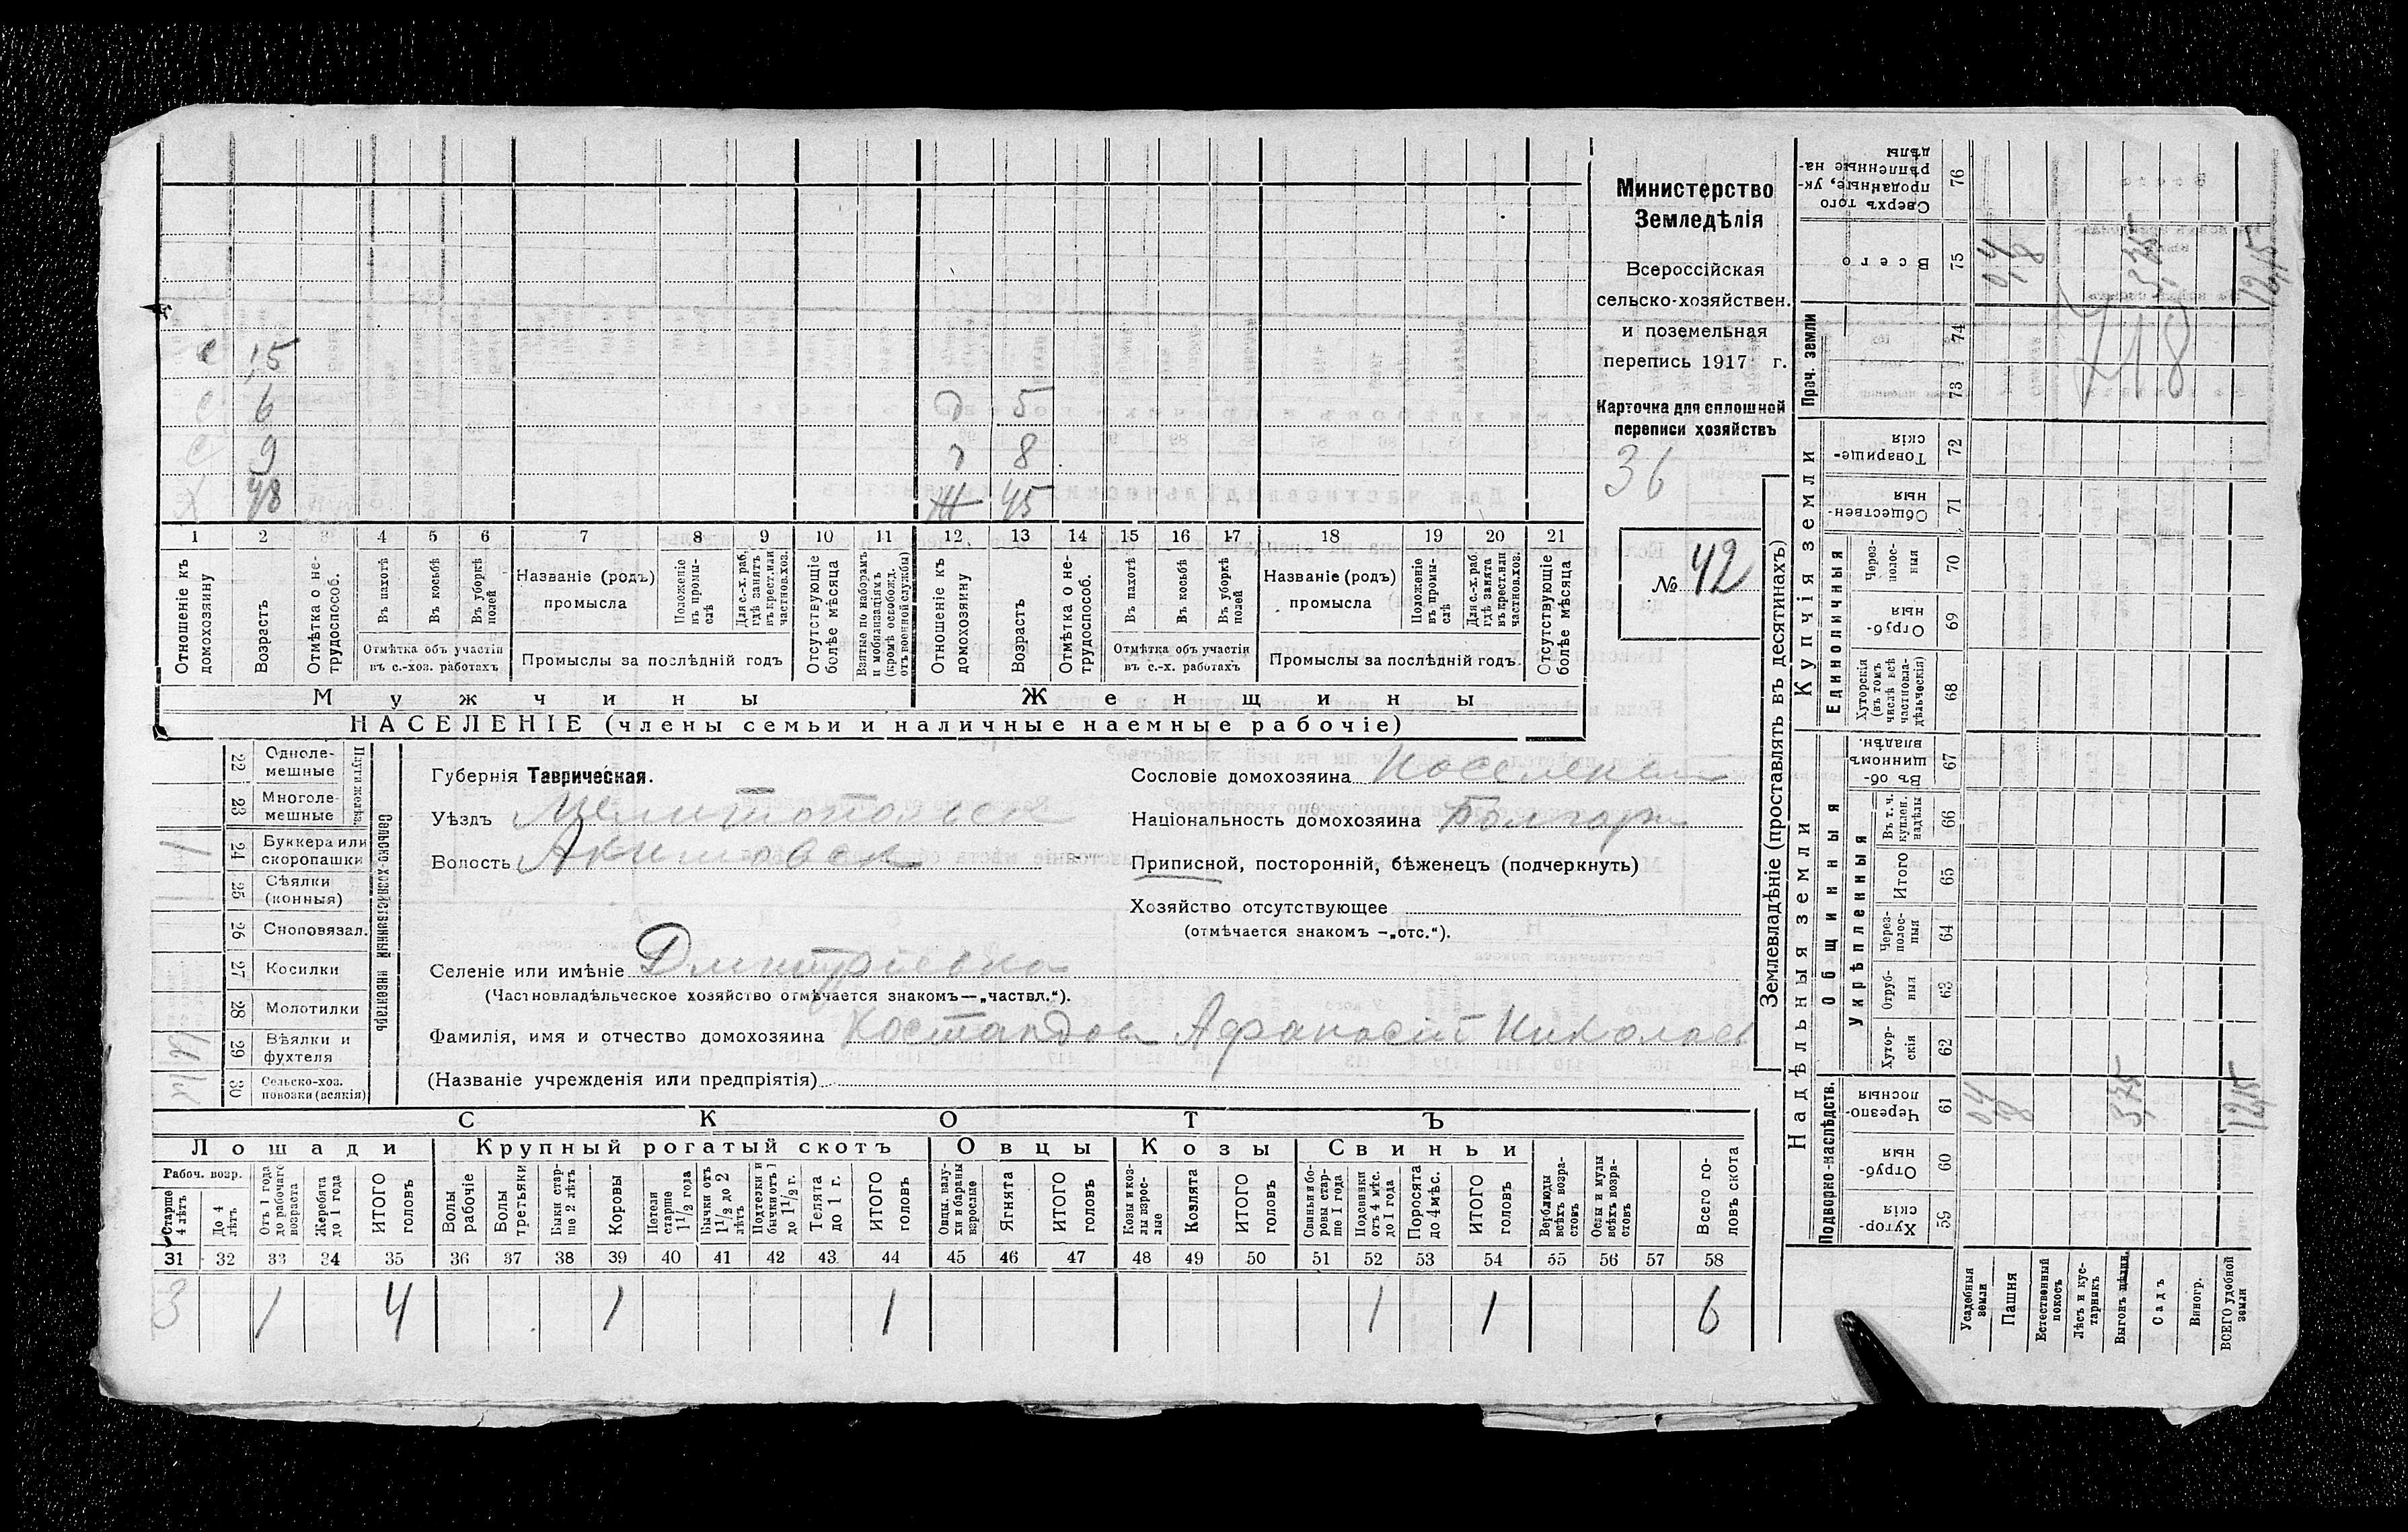 с 1,5
с 6 д 5
с 9 д 8
Х 48 Ж 45
1 2 3 4 5 6 7 8 9 10 11 12 13 14 15 16 17 18 19 20 21
Отношеніе къ домохозяину
Возрастъ
Отмѣтка о не-трудоспособ.
Въ пахотѣ
Въ косьбѣ
Въ уборкѣ полей
Отмѣтка объ участіи въ с.-хоз. работахъ
Названіе (родъ) промысла
Положеніе въ промы-слѣ
Для с.-х. раб. гдѣ занятъ въ крест. или частнов. хоз.
Промыслы за послѣдній годъ
Отсутствующіе болѣе мѣсяца
Взятые по наборамъ и мобилизаціямъ (кромѣ освобожд. отъ военной службы)
Отношеніе къ домохозяину
Возрастъ
Отмѣтка о не-трудоспособ.
Въ пахотѣ
Въ косьбѣ
Въ уборкѣ полей
Отмѣтка объ участіи въ с.-х. работахъ
Названіе (родъ) промысла
Положеніе въ промы-слѣ
Для с.-х. раб. гдѣ занята въ крест. или частнов. хоз.
Промыслы за послѣдній годъ
Отсутствующіе болѣе мѣсяца
Мужчины Женщины
НАСЕЛЕНІЕ (члены семьи и наличные наемные рабочіе)
Министерство
Земледѣлія
Всероссійская
сельско-хозяйствен.
и поземельная
перепись 1917 г.
Карточка для сплошной
переписи хозяйствъ
36
№ 42
22 Одноле-мешные
23 Многоле-мешные
Плуги желѣз.
24 Буккера или скоропашки 1
25 Сѣялки (конныя)
26 Сноповязал.
27 Косилки
28 Молотилки
29 Вѣялки и фухтеля
30 Сельско-хоз. повозки (всякія)
Сельско-хозяйственный инвентарь
Губернія Таврическая.
Уѣздъ Мелитопольск
Волость Акимовск
Селеніе или имѣніе Дмитріевка
(Частновладѣльческое хозяйство отмѣчается знакомъ—„частвл.“).
Фамилія, имя и отчество домохозяина Костандов Афанасій Николаев
(Названіе учрежденія или предпріятія)
Сословіе домохозяина Поселенин
Національность домохозяина Болгар
Приписной, посторонній, бѣженецъ (подчеркнуть)
Хозяйство отсутствующее
(отмѣчается знакомъ —„отс.“).
СКОТЪ
Лошади Крупный рогатый скотъ Овцы Козы Свиньи
Рабоч. возр.
Старше 4 лѣтъ
До 4 лѣтъ
Отъ 1 года до рабочаго возраста
Жеребята до 1 года
ИТОГО головъ
Волы рабочіе
Волы третьяки
Быки стар-ше 2 лѣтъ
Коровы
Нетели старше 1 1/2 года
Бычки отъ 1 1/2 до 2 лѣтъ
Подтелки и бычки отъ 1 до 1 1/2 г.
Телята до 1 г.
ИТОГО головъ
Овцы, валу-хи и бараны взрослые
Ягнята
ИТОГО головъ
Козы и коз-лы взрос-лые
Козлята
ИТОГО головъ
Свиньи и бо-ровы стар-ше 1 года
Подсвинки отъ 4 мѣс. до 1 года
Поросята до 4 мѣс.
ИТОГО головъ
Верблюды всѣхъ возра-стовъ
Ослы и мулы всѣхъ возра-стовъ
Всего го-ловъ скота
31 32 33 34 35 36 37 38 39 40 41 42 43 44 45 46 47 48 49 50 51 52 53 54 55 56 57 58
3 1 4 1 1 1 1 6
Землевладѣніе (проставлять въ десятинахъ)
Надѣльныя земли Купчія земли
Подворно-наслѣдств.
Общинныя
Укрѣпленныя
Единоличныя
Проч. земли
Хутор-скія 59
Отруб-ныя 60
Черезпо-лосныя 61 04 8 3,75 12,15
Хутор-скія 62
Отруб-ныя 63
Через-полос-ныя 64
Итого 65
Въ т. ч. куплен. надѣлы 66
Въ об-щинномъ владѣн. 67
Хуторскія (въ томъ числѣ всѣ частновла-дѣльческія) 68
Отруб-ныя 69
Через-полос-ныя 70
Обществен-ныя 71
Товарище-скія 72
73
74
Всего 75 0,4 8 3,75 12,15
Сверхъ того проданные, ук-рѣпленные на-дѣлы 76
Усадебныя земли
Пашня
Естественный покосъ
Лѣсъ и кус-тарникъ
Выгонъ цѣлин.
Садъ
Виногр.
ВСЕГО удобной земли